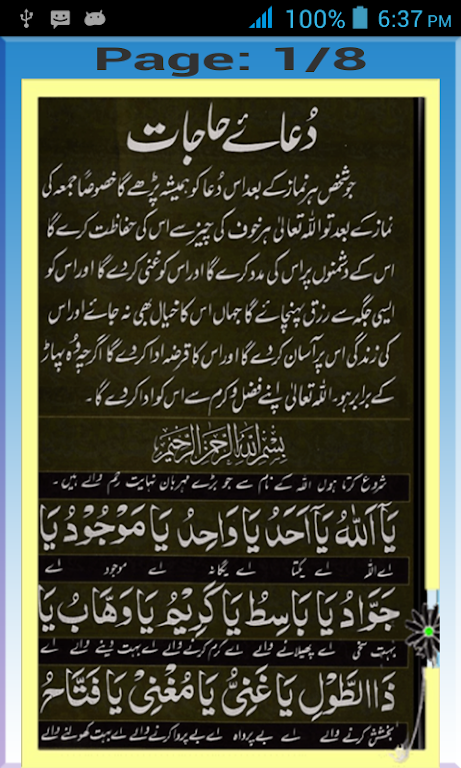 100% 6:37 PM
Page: 1/8
دُعائے حاجات
جو شخص ہر نماز کے بعد اس دُعا کو ہمیشہ پڑھے گا خصوصاً جمعہ کی
نماز کے بعد تو اللہ تعالیٰ ہر خوف کی چیز سے اس کی حفاظت کرے گا
اس کے دشمنوں پر اس کی مدد کرے گا اور اس کو غنی کر دے گا اور اس کو
ایسی جگہ سے رزق پہنچائے گا جہاں اس کا خیال بھی نہ جائے اور اس
کی زندگی اس پر آسان کر دے گا اور اس کا قرضہ ادا کر دے گا اگرچہ وُہ پہاڑ
کے برابر ہو۔ اللہ تعالیٰ اپنے فضل و کرم سے اس کو ادا کر دے گا۔
بِسْمِ اللهِ الرَّحْمٰنِ الرَّحِيْمِ
شروع کرتا ہوں اللہ کے نام سے جو بڑے مہربان نہایت رحم والے ہیں۔
يَآ اَللهُ يَآ اَحَدُ يَا وَاحِدُ يَا مَوْجُوْدُ يَا
اے اللہ اے یکتا اے یگانہ اے موجود اے
جَوَّادُ يَا بَاسِطُ يَا كَرِيْمُ يَا وَهَّابُ يَا
بہت سخی اے پھیلانے والے اے کرم کرنے والے اے بہت دینے والے اے
ذَا الطَّوْلِ يَا غَنِيُّ يَا مُغْنِيْ يَا فَتَّاحُ
بخشش کرنے والے اے بے پرواہ اے بے پرواہ کرنے والے اے بہت کھولنے والے